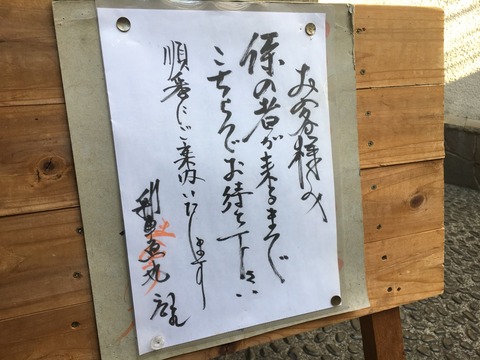 お客様へ
係の者が来るまで
こちらでお待ち下さい
順番にご案内いたします